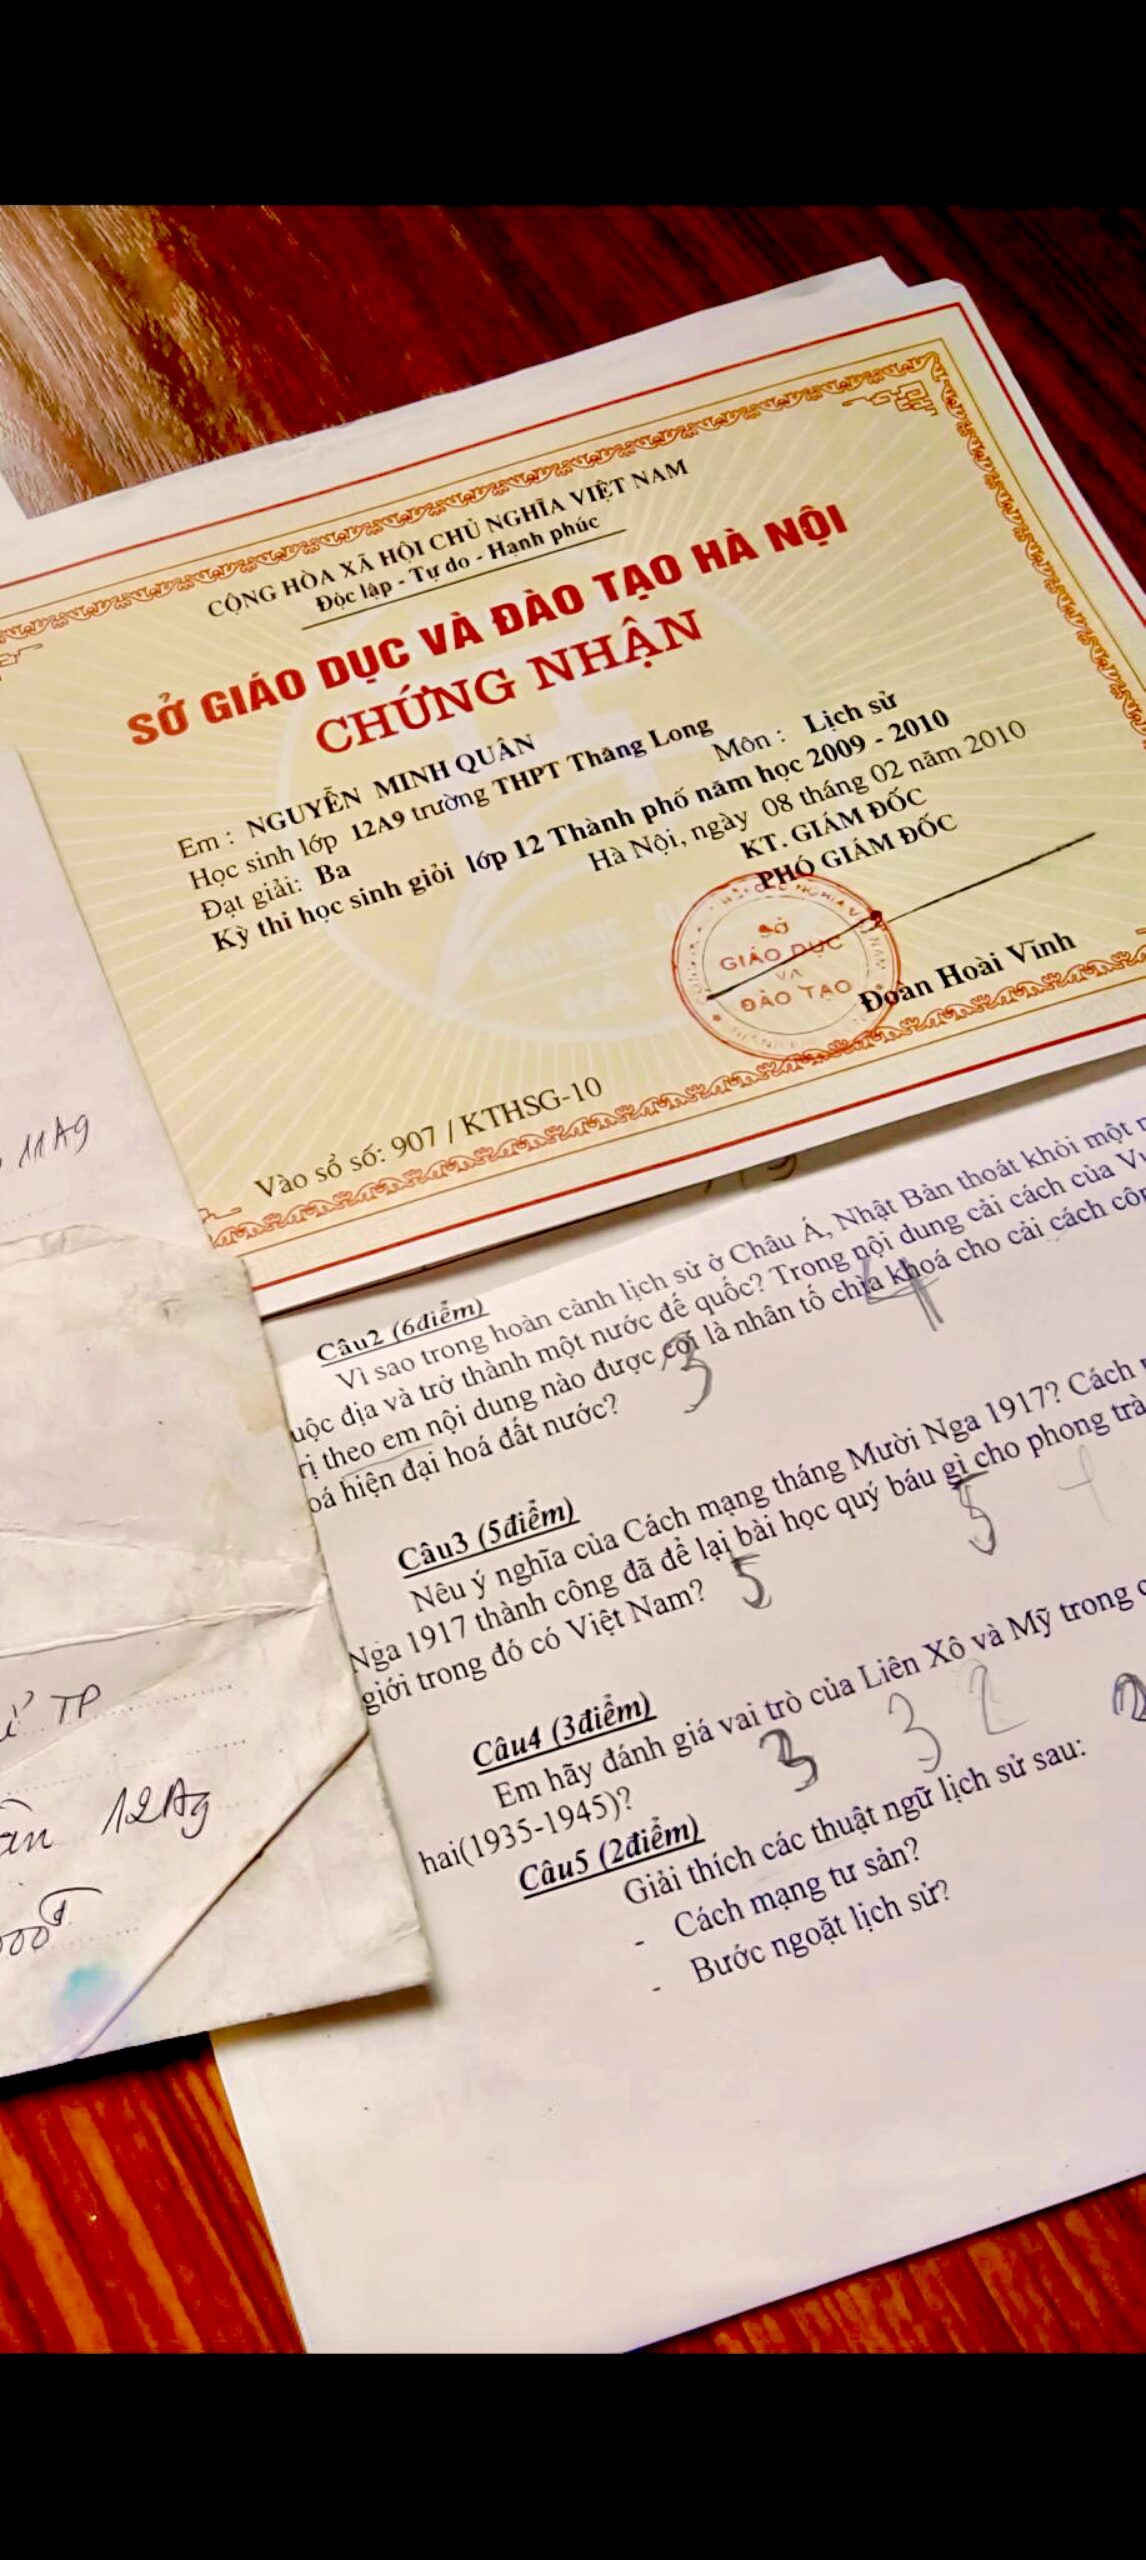 CỘNG HÒA XÃ HỘI CHỦ NGHĨA VIỆT NAM
Độc lập - Tự do - Hạnh phúc
SỞ GIÁO DỤC VÀ ĐÀO TẠO HÀ NỘI
CHỨNG NHẬN
Em : NGUYỄN MINH QUÂN
Học sinh lớp 12A9 trường THPT Thăng Long
Đạt giải: Ba Môn : Lịch sử
Kỳ thi học sinh giỏi lớp 12 Thành phố năm học 2009 - 2010
Hà Nội, ngày 08 tháng 02 năm 2010
KT. GIÁM ĐỐC
PHÓ GIÁM ĐỐC
SỞ
GIÁO DỤC
VÀ
ĐÀO TẠO
Đoàn Hoài Vĩnh
Vào sổ số: 907 / KTHSG-10
11A9
Câu2 (6điểm)
Vì sao trong hoàn cảnh lịch sử ở Châu Á, Nhật Bản thoát khỏi một
uộc địa và trở thành một nước đế quốc? Trong nội dung cải cách của
rị theo em nội dung nào được coi là nhân tố chìa khoá cho cải cách
oá hiện đại hoá đất nước?
3
4
Câu3 (5điểm)
Nêu ý nghĩa của Cách mạng tháng Mười Nga 1917? Cách
Nga 1917 thành công đã để lại bài học quý báu gì cho phong
giới trong đó có Việt Nam?
5
5
Câu4 (3điểm)
Em hãy đánh giá vai trò của Liên Xô và Mỹ trong
hai(1935-1945)?
3
3
2
2
Câu5 (2điểm)
Giải thích các thuật ngữ lịch sử sau:
- Cách mạng tư sản?
- Bước ngoặt lịch sử?
TP
12A9